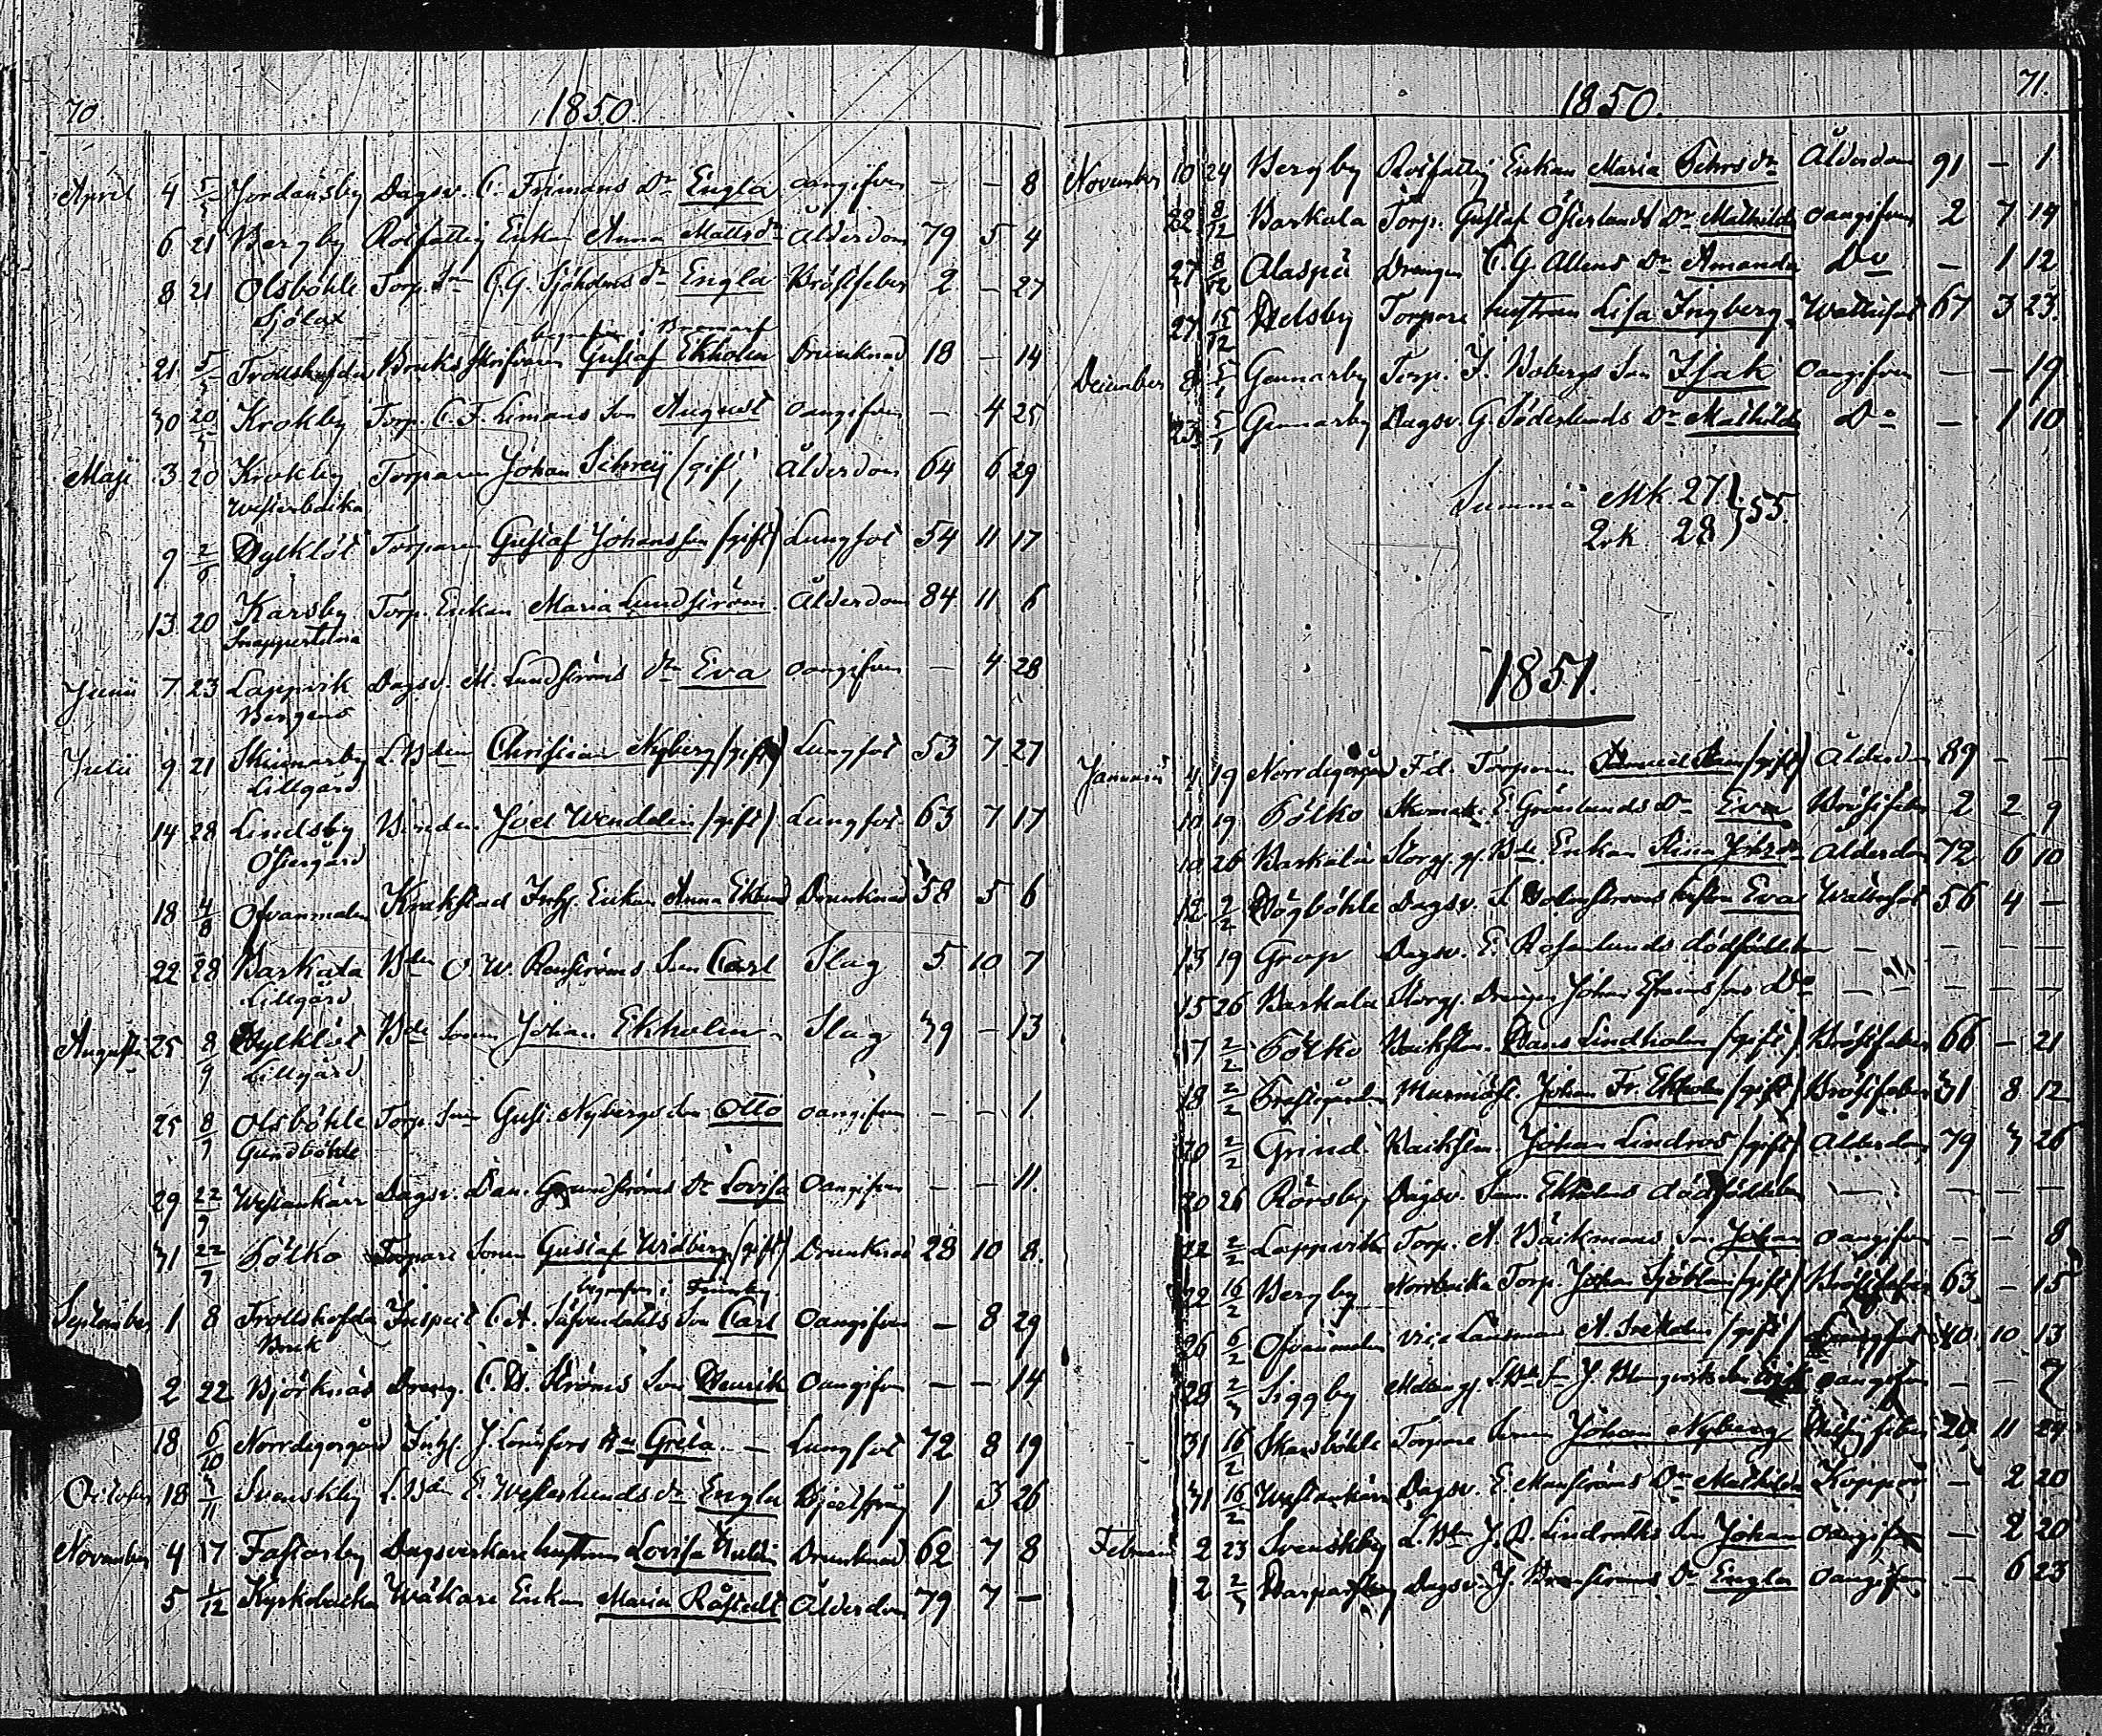 70. 1850.
April 4 5/5 Jordansby Dagsv. C. Frimans Dr Engla oangifven — — 8
6 21 Bergby Rotfattig Enkan Anna Mattsdr Ålderdom 79 5 4
8 21 Olsböhle Torp. Sn C.G. Sjöholms dr Engla Bröstfeber 2 — 27
Sjölax
begrafven i Bromarf
21 5/5 Trollshofda Bruks Skrifvaren Gustaf Ekholm Drunknad 18 — 14
30 20/5 Krokby Torp. C.F. Lemans Son August oangifven — 4 25
Maji 3 20 Krokby Torparen Johan Schreij (gift) Ålderdom 64 6 29
Westerbacka
9 2/6 Dylkłöt Torparen Gustaf Johansson (gift) Lungsot 54 11 17
13 20 Karsby Torp. Enkan Maria Lundström Ålderdom 84 11 6
Snappertuna
Junii 7 23 Lappvik Dagsv. M. Lundströms dr Eva oangifven — 4 28
Bergans
Julii 9 21 Skinnarby L.Bden Christian Nyberg (gift) Lungsot 53 7 27
Lillgård
14 28 Lindsby Bonden Joel Wendelin (gift) Lungsot 63 7 17
Östergård
18 4/8 Ofvanmalm Enkan Anna Eklund Drunknad 58 5 6
22 28 Barkala Bden O.W. Renströms Son Carl Slag 5 10 7
Lillgård
Augusti 25 8/9 Bde Sonen Johan Ekholm Slag 39 — 13
Lillgård
25 8/9 Olsböhle Torp. Sn Gust. Nybergs Son Otto oangifven — — 1
Gundböhle
29 22/9 Westankärr Dagsv. Dan. Grundströms Dr Lovisa Oangifven — — 11.
31 22/9 Fölko Torpare Sonen Gustaf Widberg (gift) Drunknad 28 10 8.
begrafven i Finnby
September 1 8 Trollshofda Inspect. C.A. Son Carl Oangifven — 8 29
Bruk
2 22 Björknäs Dreng. C.H. Ströms Son Henrik Oangifven — — 14
18 6/10 Norrdegergård Inhs. J. Lönnfors Hu Greta — Lungsot 72 8 19
October 18 3/11 Svenskby L.Bden E. Westerlunds dr Engla 1 3 26
November 4 17 Fastarby Dagsverkare hustrun Lovisa Drunknad 62 7 8
5 1/12 Kyrkobacka Enkan Maria Råstedt Ålderdom 79 7 —
1850. 71.
November 10 24 Bergby Rotfattig Enkan Maria Ålderdom 91 — 1
22 8/12 Barkala Torp. Gustaf Österlunds Dr Mathilda oangifven 2 7 19
27 8/12 Alaspä Drengen C.G. Allens Dr Amanda Do — 1 12
27 15/12 Torpare hustrun Lisa Ingberg Wattusot 67 3 23.
December 8 5/1 Gennarby Torp. J. Bobergs Son Isak Oangifven — — 19.
23 5/1 Gennarby Dagsv. G. Söderlunds Dr Mathilda Do — 1 10
Summa Mk. 27 } 55.
Qvk. 28
1851.
Januarii 4 19 Norrdegergård Fd. Torparen (gift) Ålderdom 89 — —
10 19 Fölko E. Grönlunds Dr Eva Bröstfeber 2 2 9
10 26 Barkala Storg. Bde Enkan Stina Ålderdom 72 6 10
12 2/2 Bögböhle Dagsv. hustru Eva Wattusot 56 4 —
13 19 Grop Dagsv. E. Rosenlunds dödfödda — — — —
15 26 Barkala Storg. Drengen Johan Efraimssons Do — — — —
17 2/2 Fölko Backstu. Hans Lindholm (gift) Bröstfeber 66 — 21
18 2/2 Prestgården Murmäst. Johan Fr. Ekholm (gift) Bröstfeber 31 8 12
20 2/2 Grind. Backstu. Johan Lindroos (gift) Ålderdom 79 3 26
20 26 Rörsby Dagsv. Ekholms dödfödda — — — —
22 2/2 Lappvik Torp. A. Bäckmans Son Johan oangifven — — 8
22 16/2 Bergby Norrbacka Torp. Johan Sjöblom (gift) Bröstfeber 63 — 15
26 6/2 Ofvanmalm Vice Länsman A. (gift) Lungsot 40 10 13
28 2/3 Siggby Mellang. J. Blomqvists Son oangifven — — 7
31 16/2 Skarsböhle Torpare Sonen Johan Nyberg 20 11 24
31 16/2 Westankärr Dagsv. E. Dr Mathilda Koppor — 2 20
Februari 2 23 Svenskby L.Bden J. Lindroths Son Johan oangifven — 2 20
2 2/3 Dagsv. J. Dr Engla oangifven — 6 23